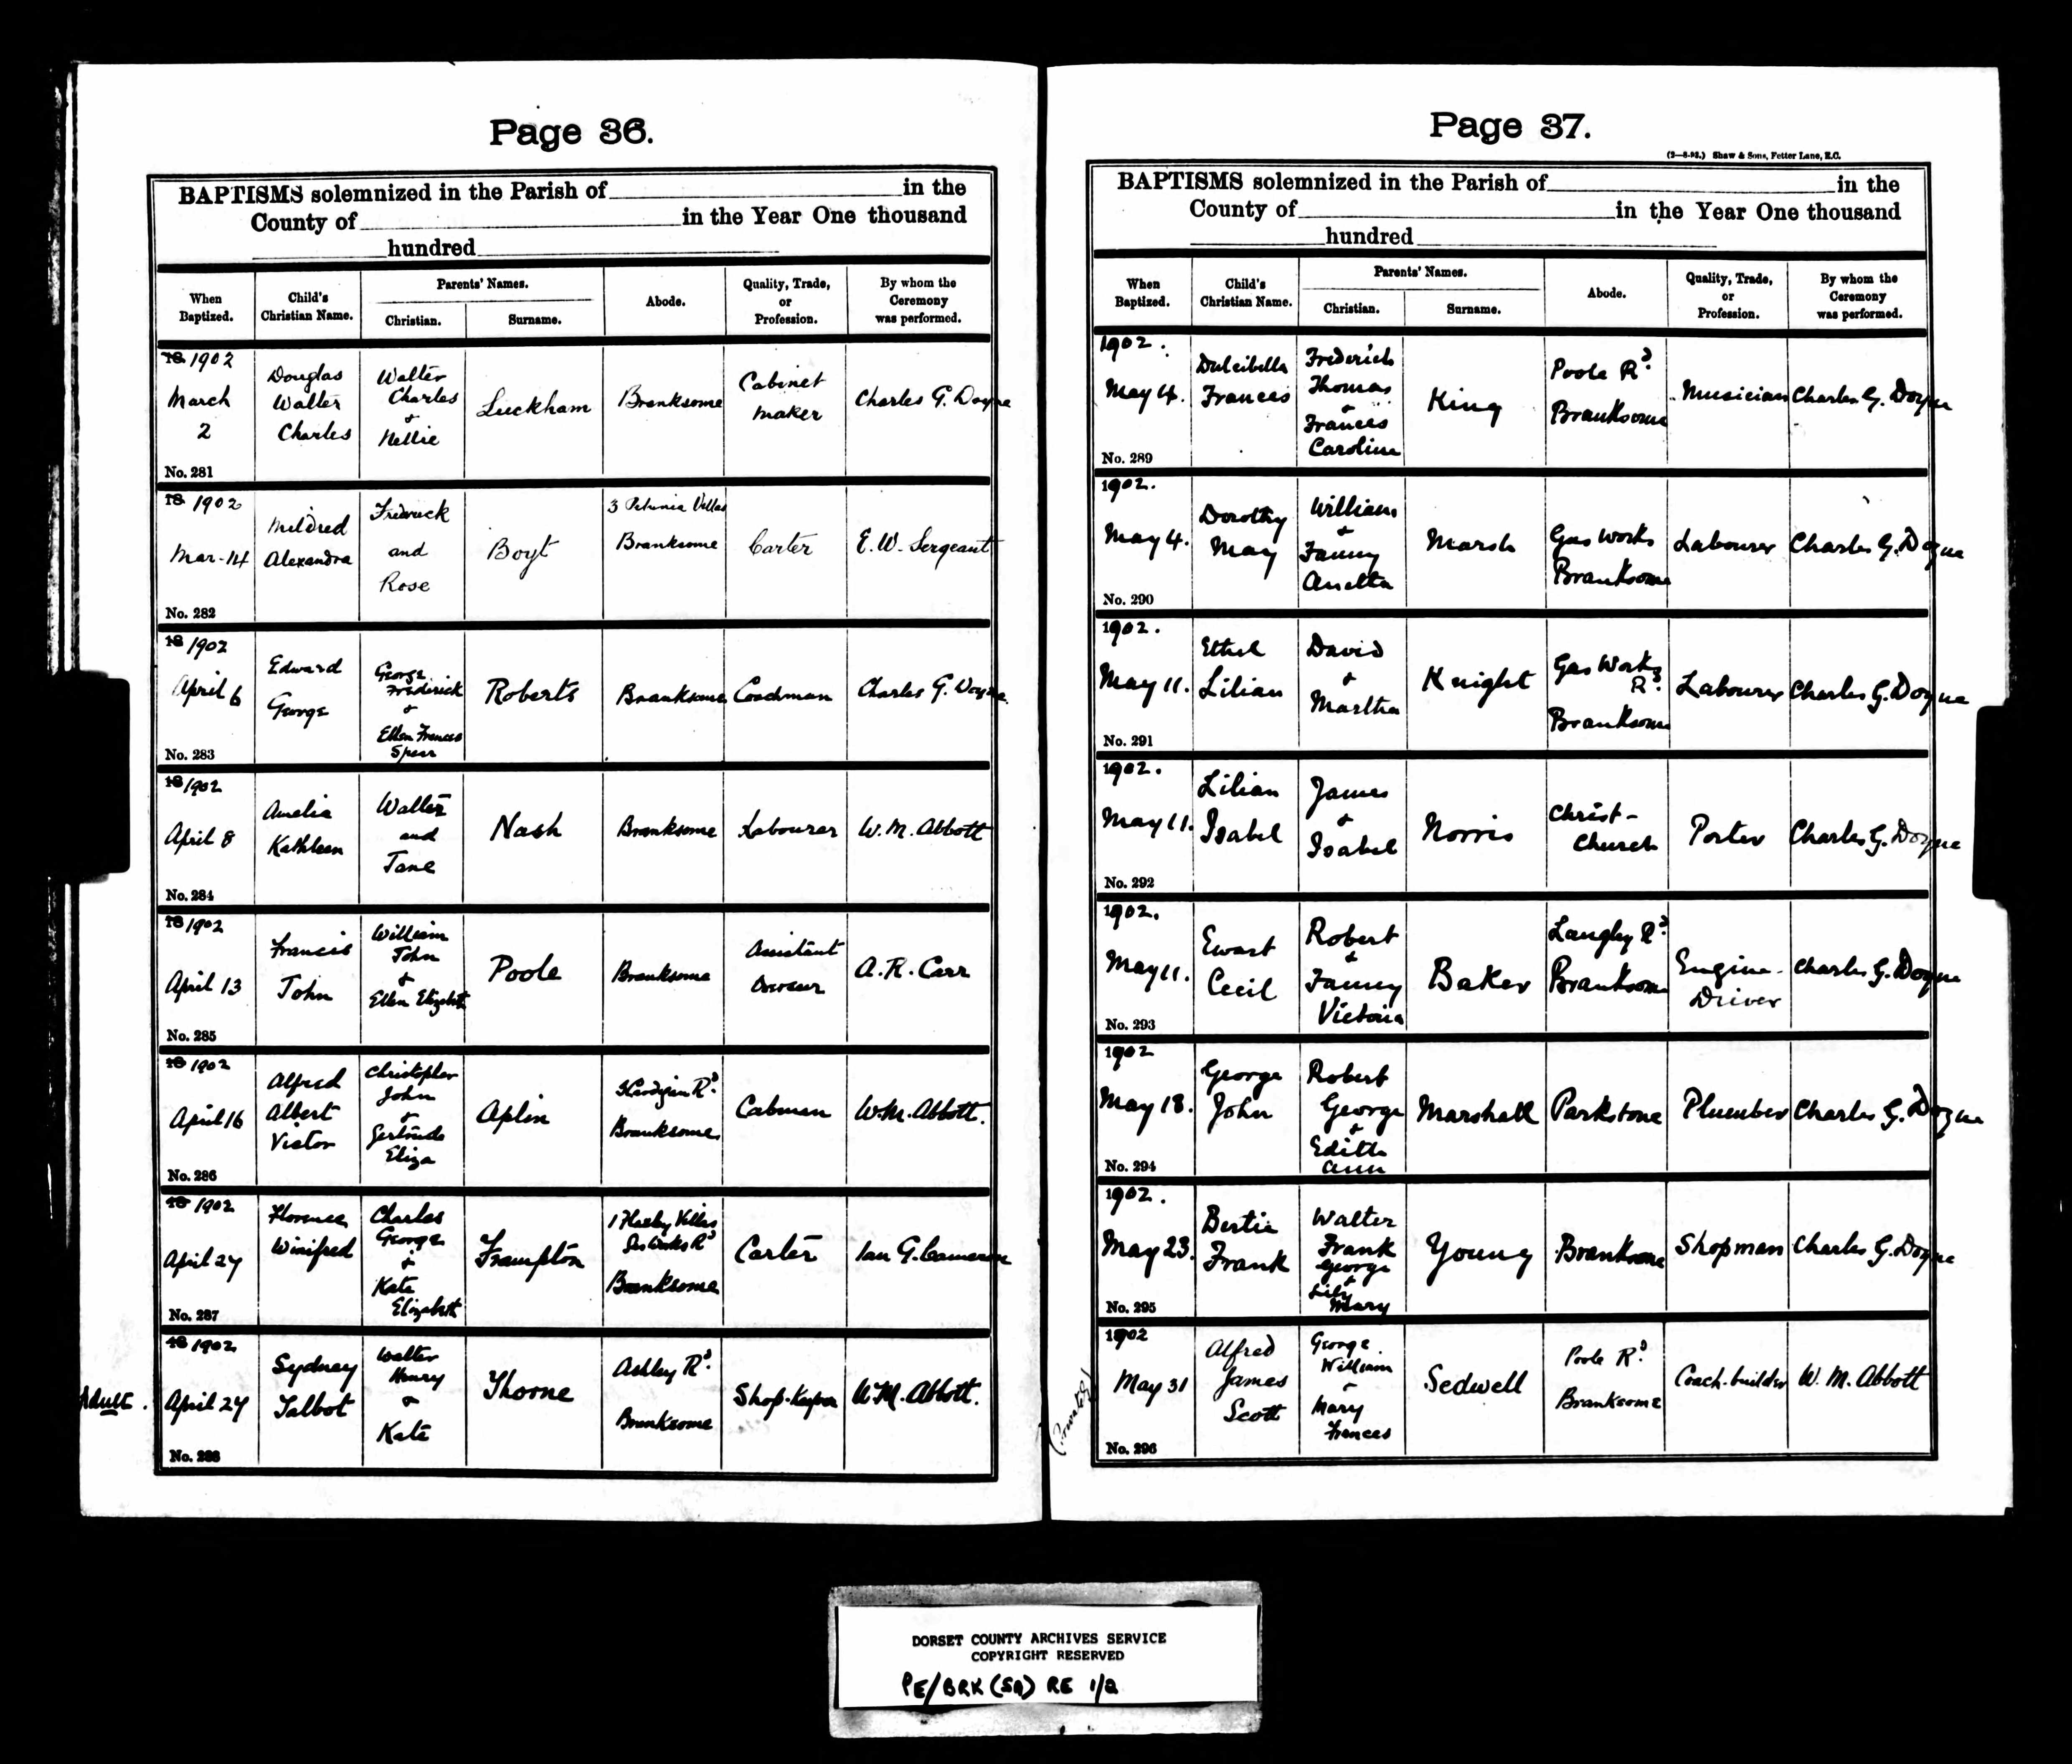 Page 36.
BAPTISMS solemnized in the Parish of in the
County of in the Year One thousand
hundred
When Baptized.
Child's Christian Name.
Parents' Names.
Christian.
Surname.
Abode.
Quality, Trade, or Profession.
By whom the Ceremony was performed.
18 1902
March
2
No. 281
Douglas
Walter
Charles
Walter
Charles
&
Nellie
Luckham
Branksome
Cabinet
Maker
Charles G. Doyne
18 1902
Mar. 14
No. 282
Mildred
Alexandra
Frederick
and
Rose
Boyt
3 Petunia Villas
Branksome
Carter
E. W. Sergeant
18 1902
April 6
No. 283
Edward
George
George
Frederick
&
Ellen Frances
Roberts
Branksome
Coachman
Charles G. Doyne
18 1902
April 8
No. 284
Amelia
Kathleen
Walter
and
Jane
Nash
Branksome
Labourer
W. M. Abbott
18 1902
April 13
No. 285
Francis
John
William
John
&
Ellen Elizabeth
Poole
Branksome
Assistant
A. R. Carr
18 1902
April 16
No. 286
Alfred
Albert
Victor
Christopher
John
&
Gertrude
Eliza
Aplin
Rd
Branksome
Cabman
W. M. Abbott.
18 1902
April 27
No. 287
Florence
Winifred
Charles
George
&
Kate
Elizabeth
Frampton
1 Villas
Gas Works Rd
Branksome
Carter
Ian G. Cameron
Adult.
18 1902
April 27
No. 288
Sydney
Talbot
Walter
Henry
&
Kate
Thorne
Ashley Rd.
Branksome
Shop-Keeper
W. M. Abbott.
Page 37.
(2—8-93.) Shaw & Sons, Fetter Lane, E.C.
BAPTISMS solemnized in the Parish of in the
County of in the Year One thousand
hundred
When Baptized.
Child's Christian Name.
Parents' Names.
Christian.
Surname.
Abode.
Quality, Trade, or Profession.
By whom the Ceremony was performed.
1902.
May 4.
No. 289
Dulcibella
Frances
Frederick
Thomas
&
Frances
Caroline
King
Poole Rd
Branksome
Musician
Charles G. Doyne
1902.
May 4.
No. 290
Dorothy
May
William
&
Fanny
Anetta
Marsh
Gas Works
Branksome
Labourer
Charles G. Doyne
1902.
May 11.
No. 291
Ethel
Lilian
David
&
Martha
Knight
Gas Works
Rd.
Branksome
Labourer
Charles G. Doyne
1902.
May 11.
No. 292
Lilian
Isabel
James
&
Isabel
Norris
Christ-
church
Porter
Charles G. Doyne
1902.
May 11.
No. 293
Ewart
Cecil
Robert
&
Fanny
Victoria
Baker
Langley Rd
Branksome
Engine-
Driver
Charles G. Doyne
1902
May 18.
No. 294
George
John
Robert
George
&
Edith
Ann
Marshall
Parkstone
Plumber
Charles G. Doyne
1902.
May 23.
No. 295
Bertie
Frank
Walter
Frank
George
&
Lily
Mary
Young
Branksome
Shopman
Charles G. Doyne
(Privately)
1902
May 31
No. 296
Alfred
James
Scott
George
William
&
Mary
Frances
Sedwell
Poole Rd.
Branksome
Coach-builder
W. M. Abbott
DORSET COUNTY ARCHIVES SERVICE
COPYRIGHT RESERVED
PE/BRK (SA) RE 1/2